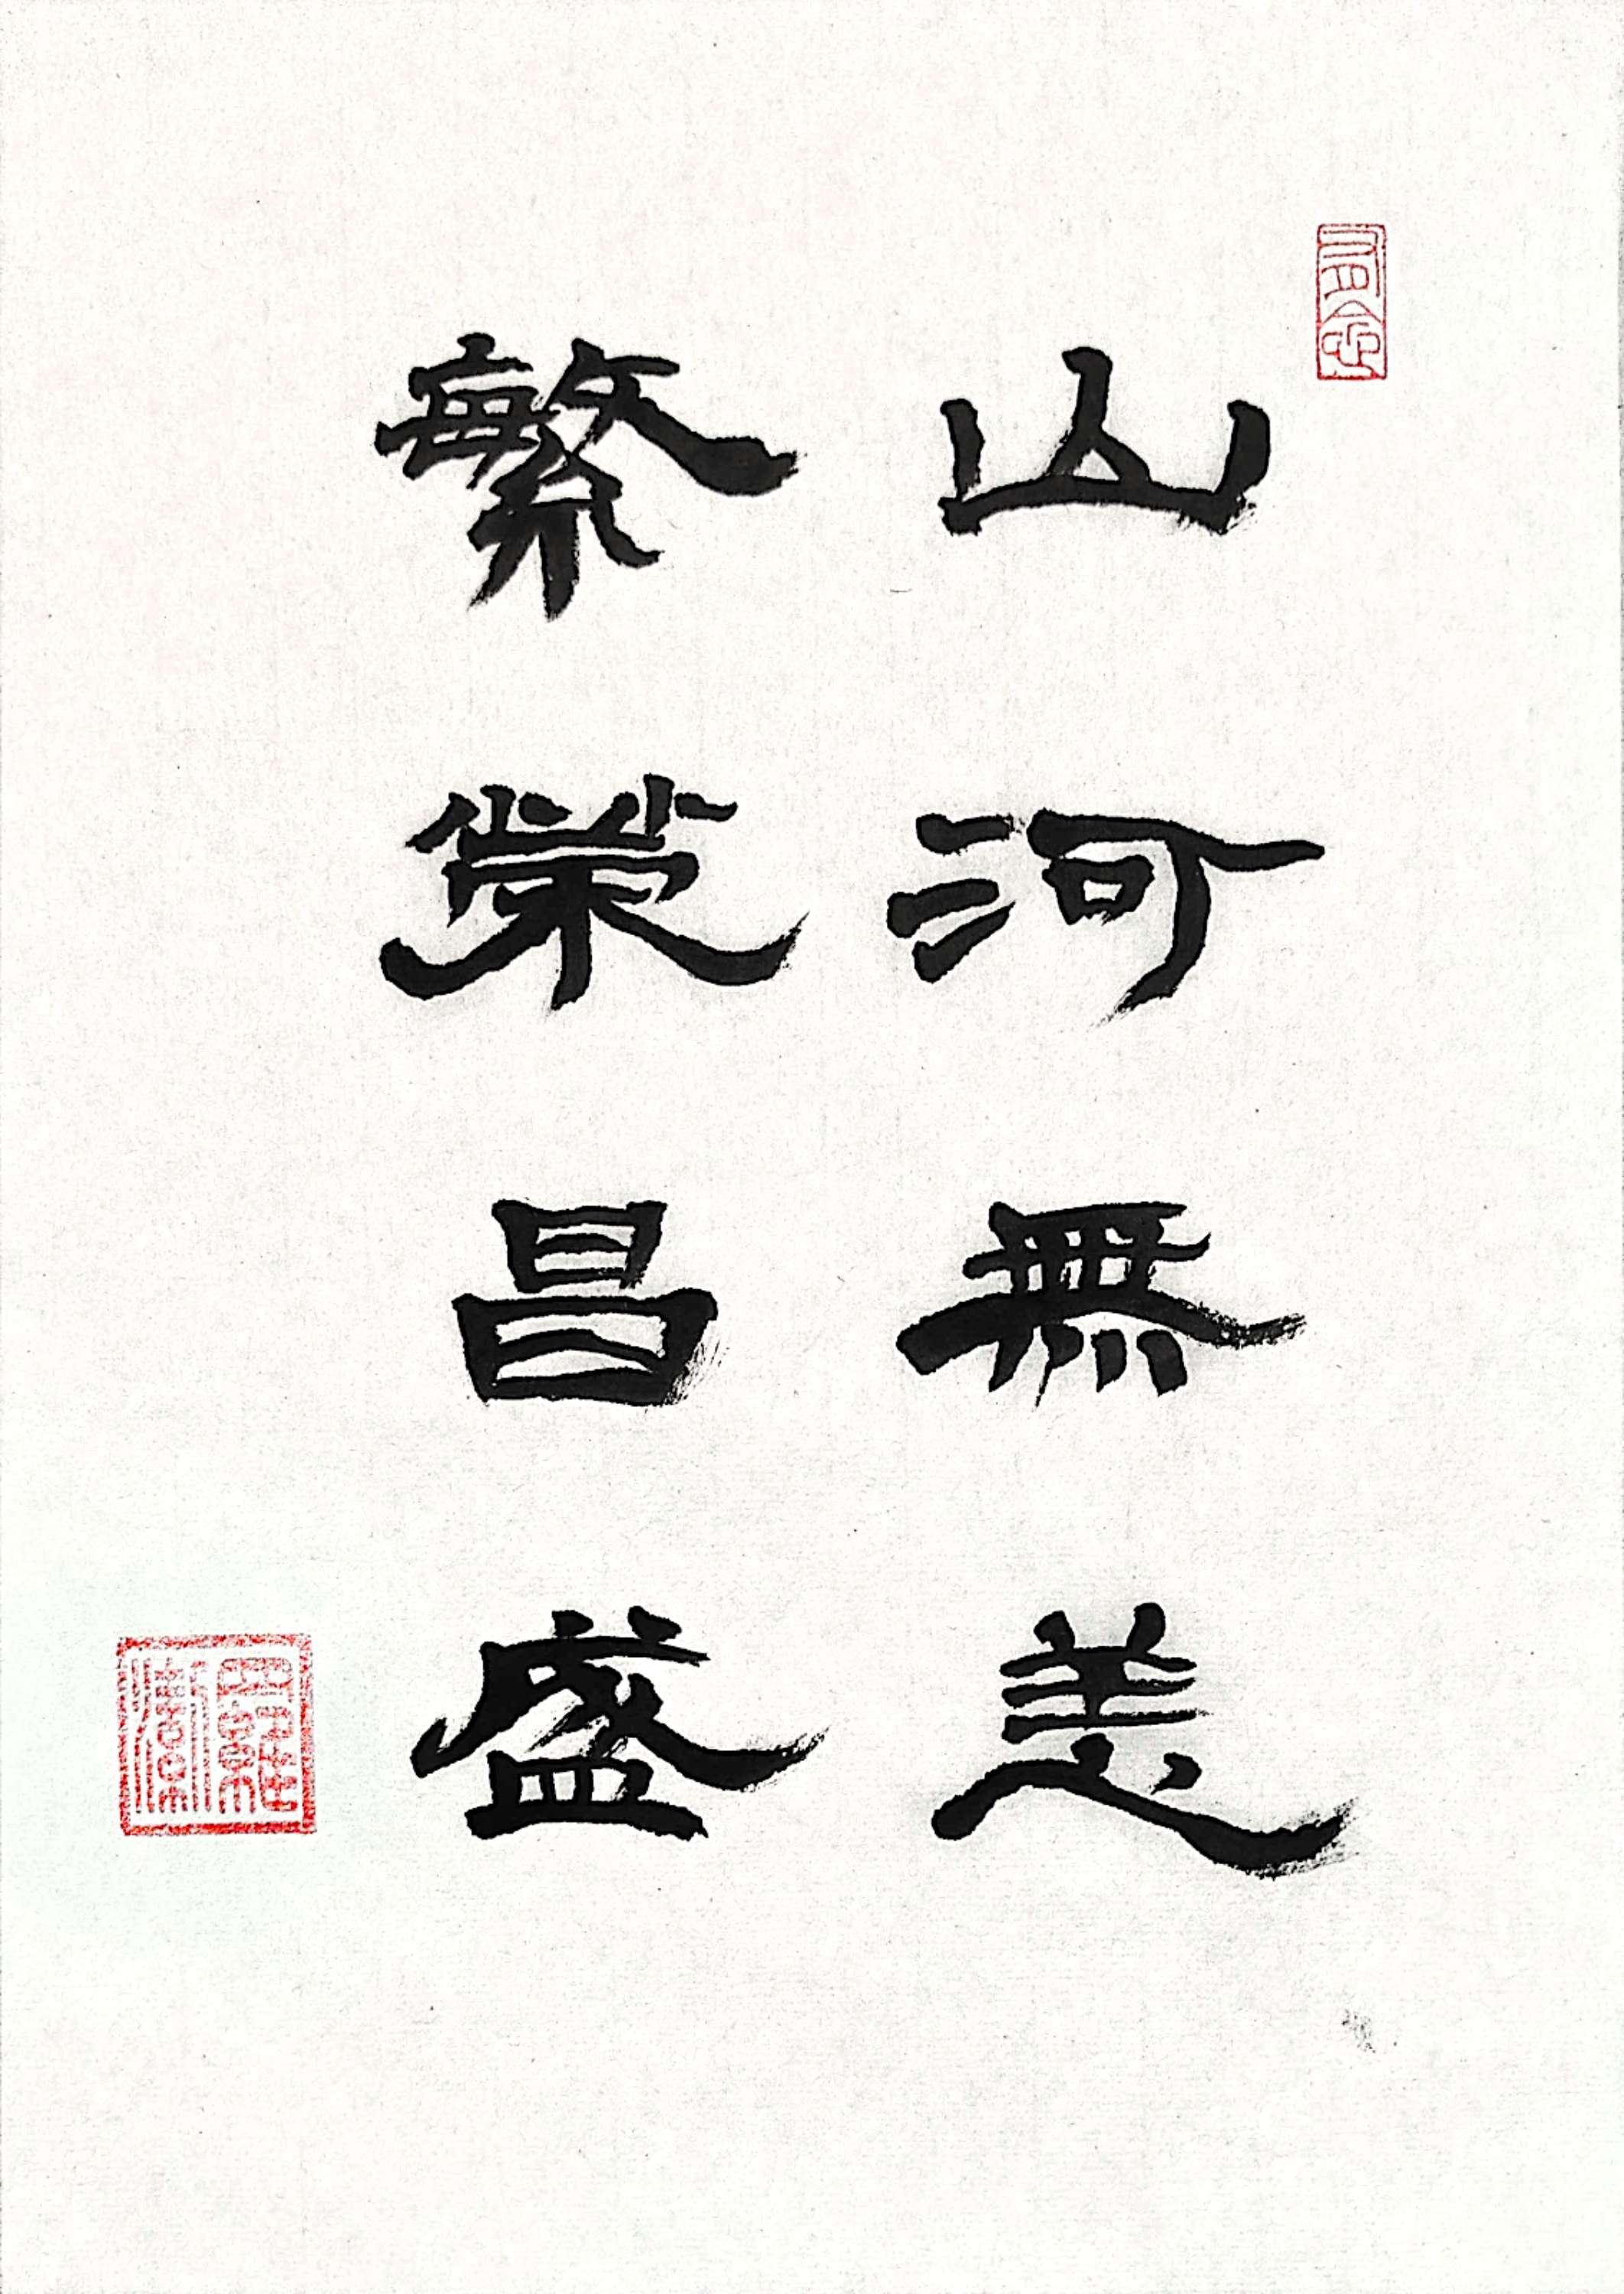 山河無恙
繁榮昌盛